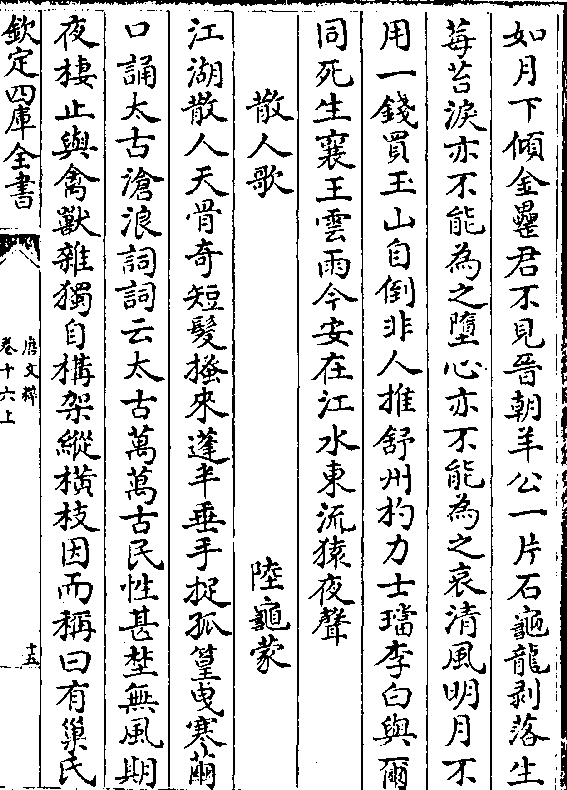 如月下傾金罍君不見晉朝羊公一片石龜龍剥落生
莓苔淚亦不能為之墮心亦不能為之哀清風明月不
用一錢買玉山自倒非人推舒州杓力士璫李白與爾
同死生襄王雲雨今安在江水東流猿夜聲
散人歌 陸龜蒙
江湖散人天骨奇短髮搔來蓬半垂手捉孤篁曵寒繭
口誦太古滄浪詞詞云太古萬萬古民性甚埜無風期
夜棲止與禽獸雜獨自構架縱橫枝因而稱曰有巢氏
欽定四庫全書
唐文粹
卷十六上
十五